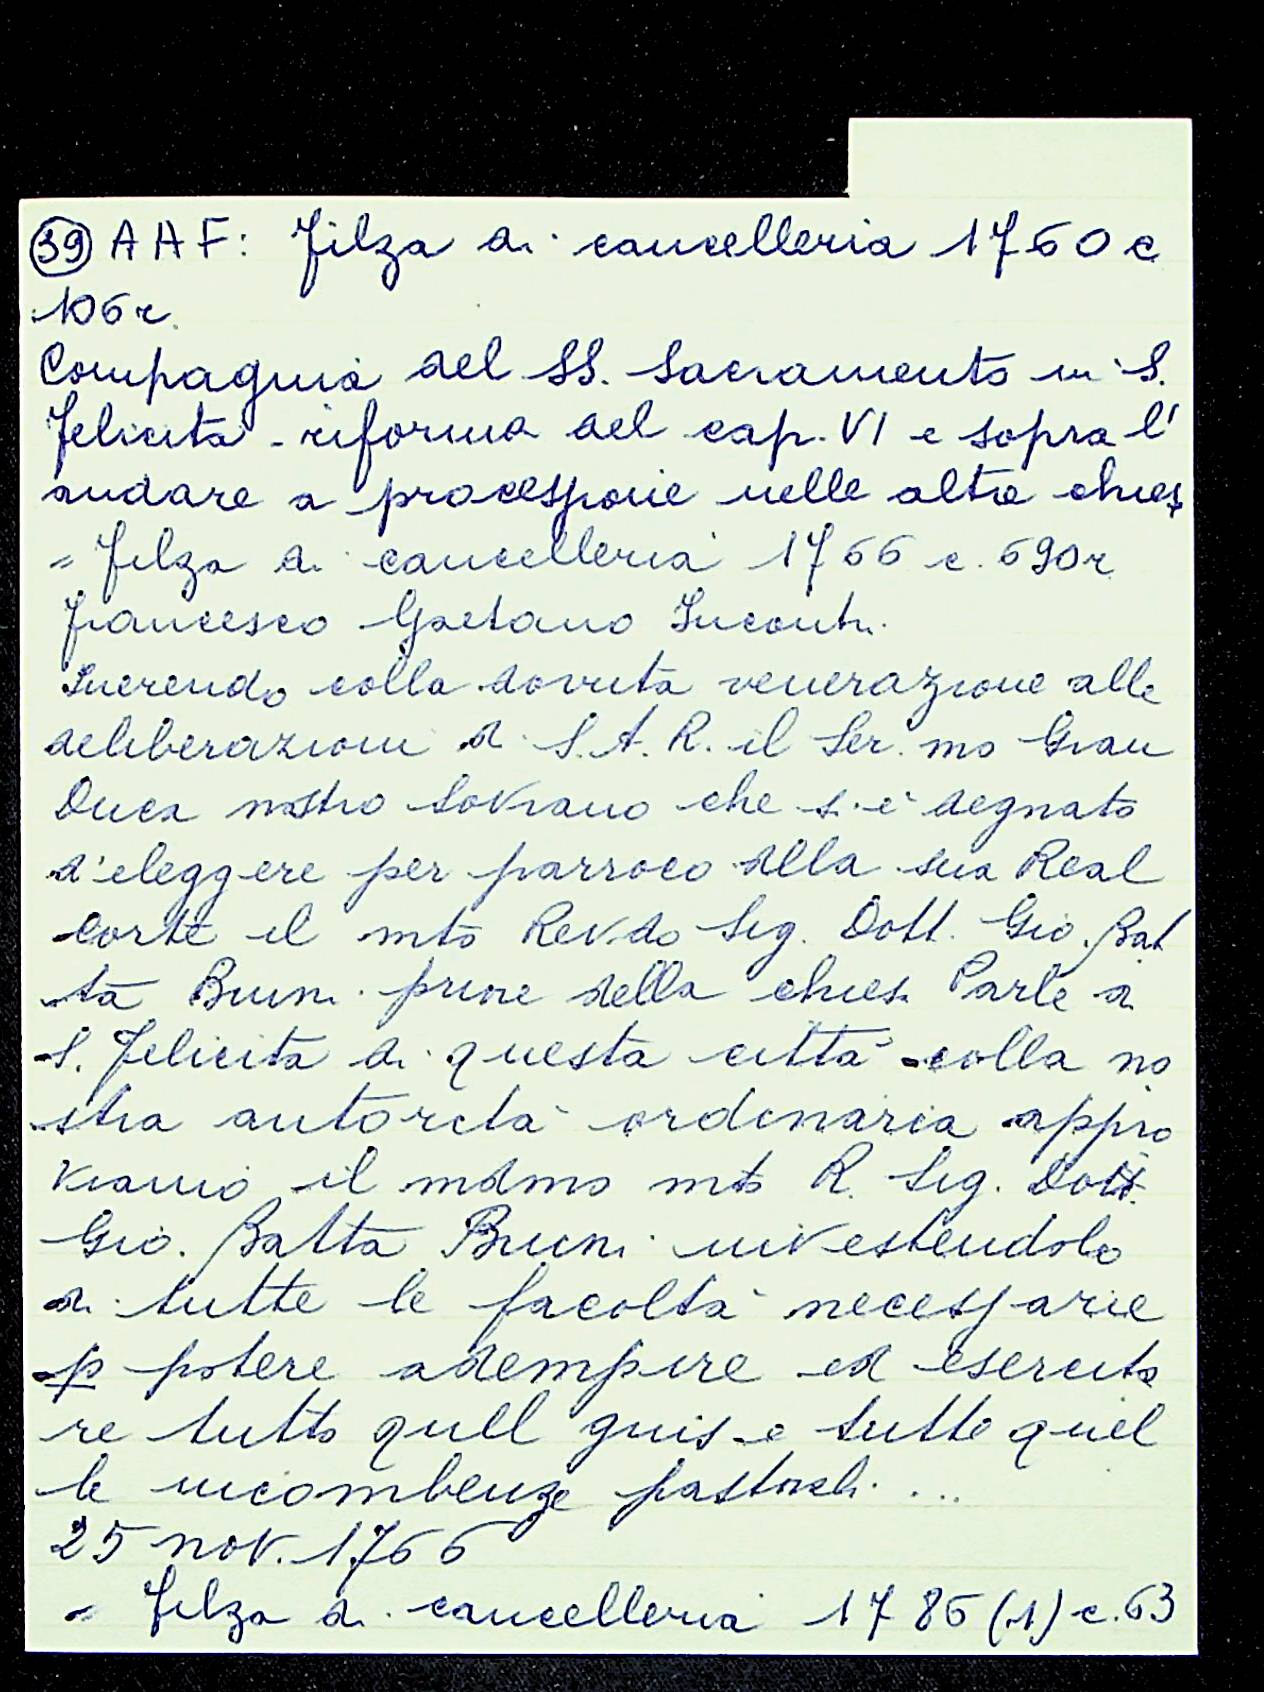 39 AAF: Filza di cancelleria 1760 c
106r.
Compagnia del SS. Sacramento in S.
Felicita - riforma del cap. VI e sopra l'
andare a processione nelle altre chies
= Filza di cancelleria 1766 c. 690r
Francesco Gaetano Incontri
Inerendo colla dovuta venerazione alle
deliberazioni di S.A.R. il Ser.mo Gran
Duca nostro Sovrano che s'è degnato
d'eleggere per parroco della sua Real
Corte il mto Rev.do Sig. Dott. Gio. Bat
ta Buini priore della chies. Parle di
S. Felicita di questa città colla no
stra autorità ordinaria appro
viamo il mdmo mto R. Sig. Dott.
Gio. Batta Buini investendolo
di tutte le facoltà necessarie
p potere adempire ed esercita
re tutto quell e tutte quel
le incombenze pastorali ...
25 nov. 1766
= Filza di cancelleria 1785 (1) c. 63